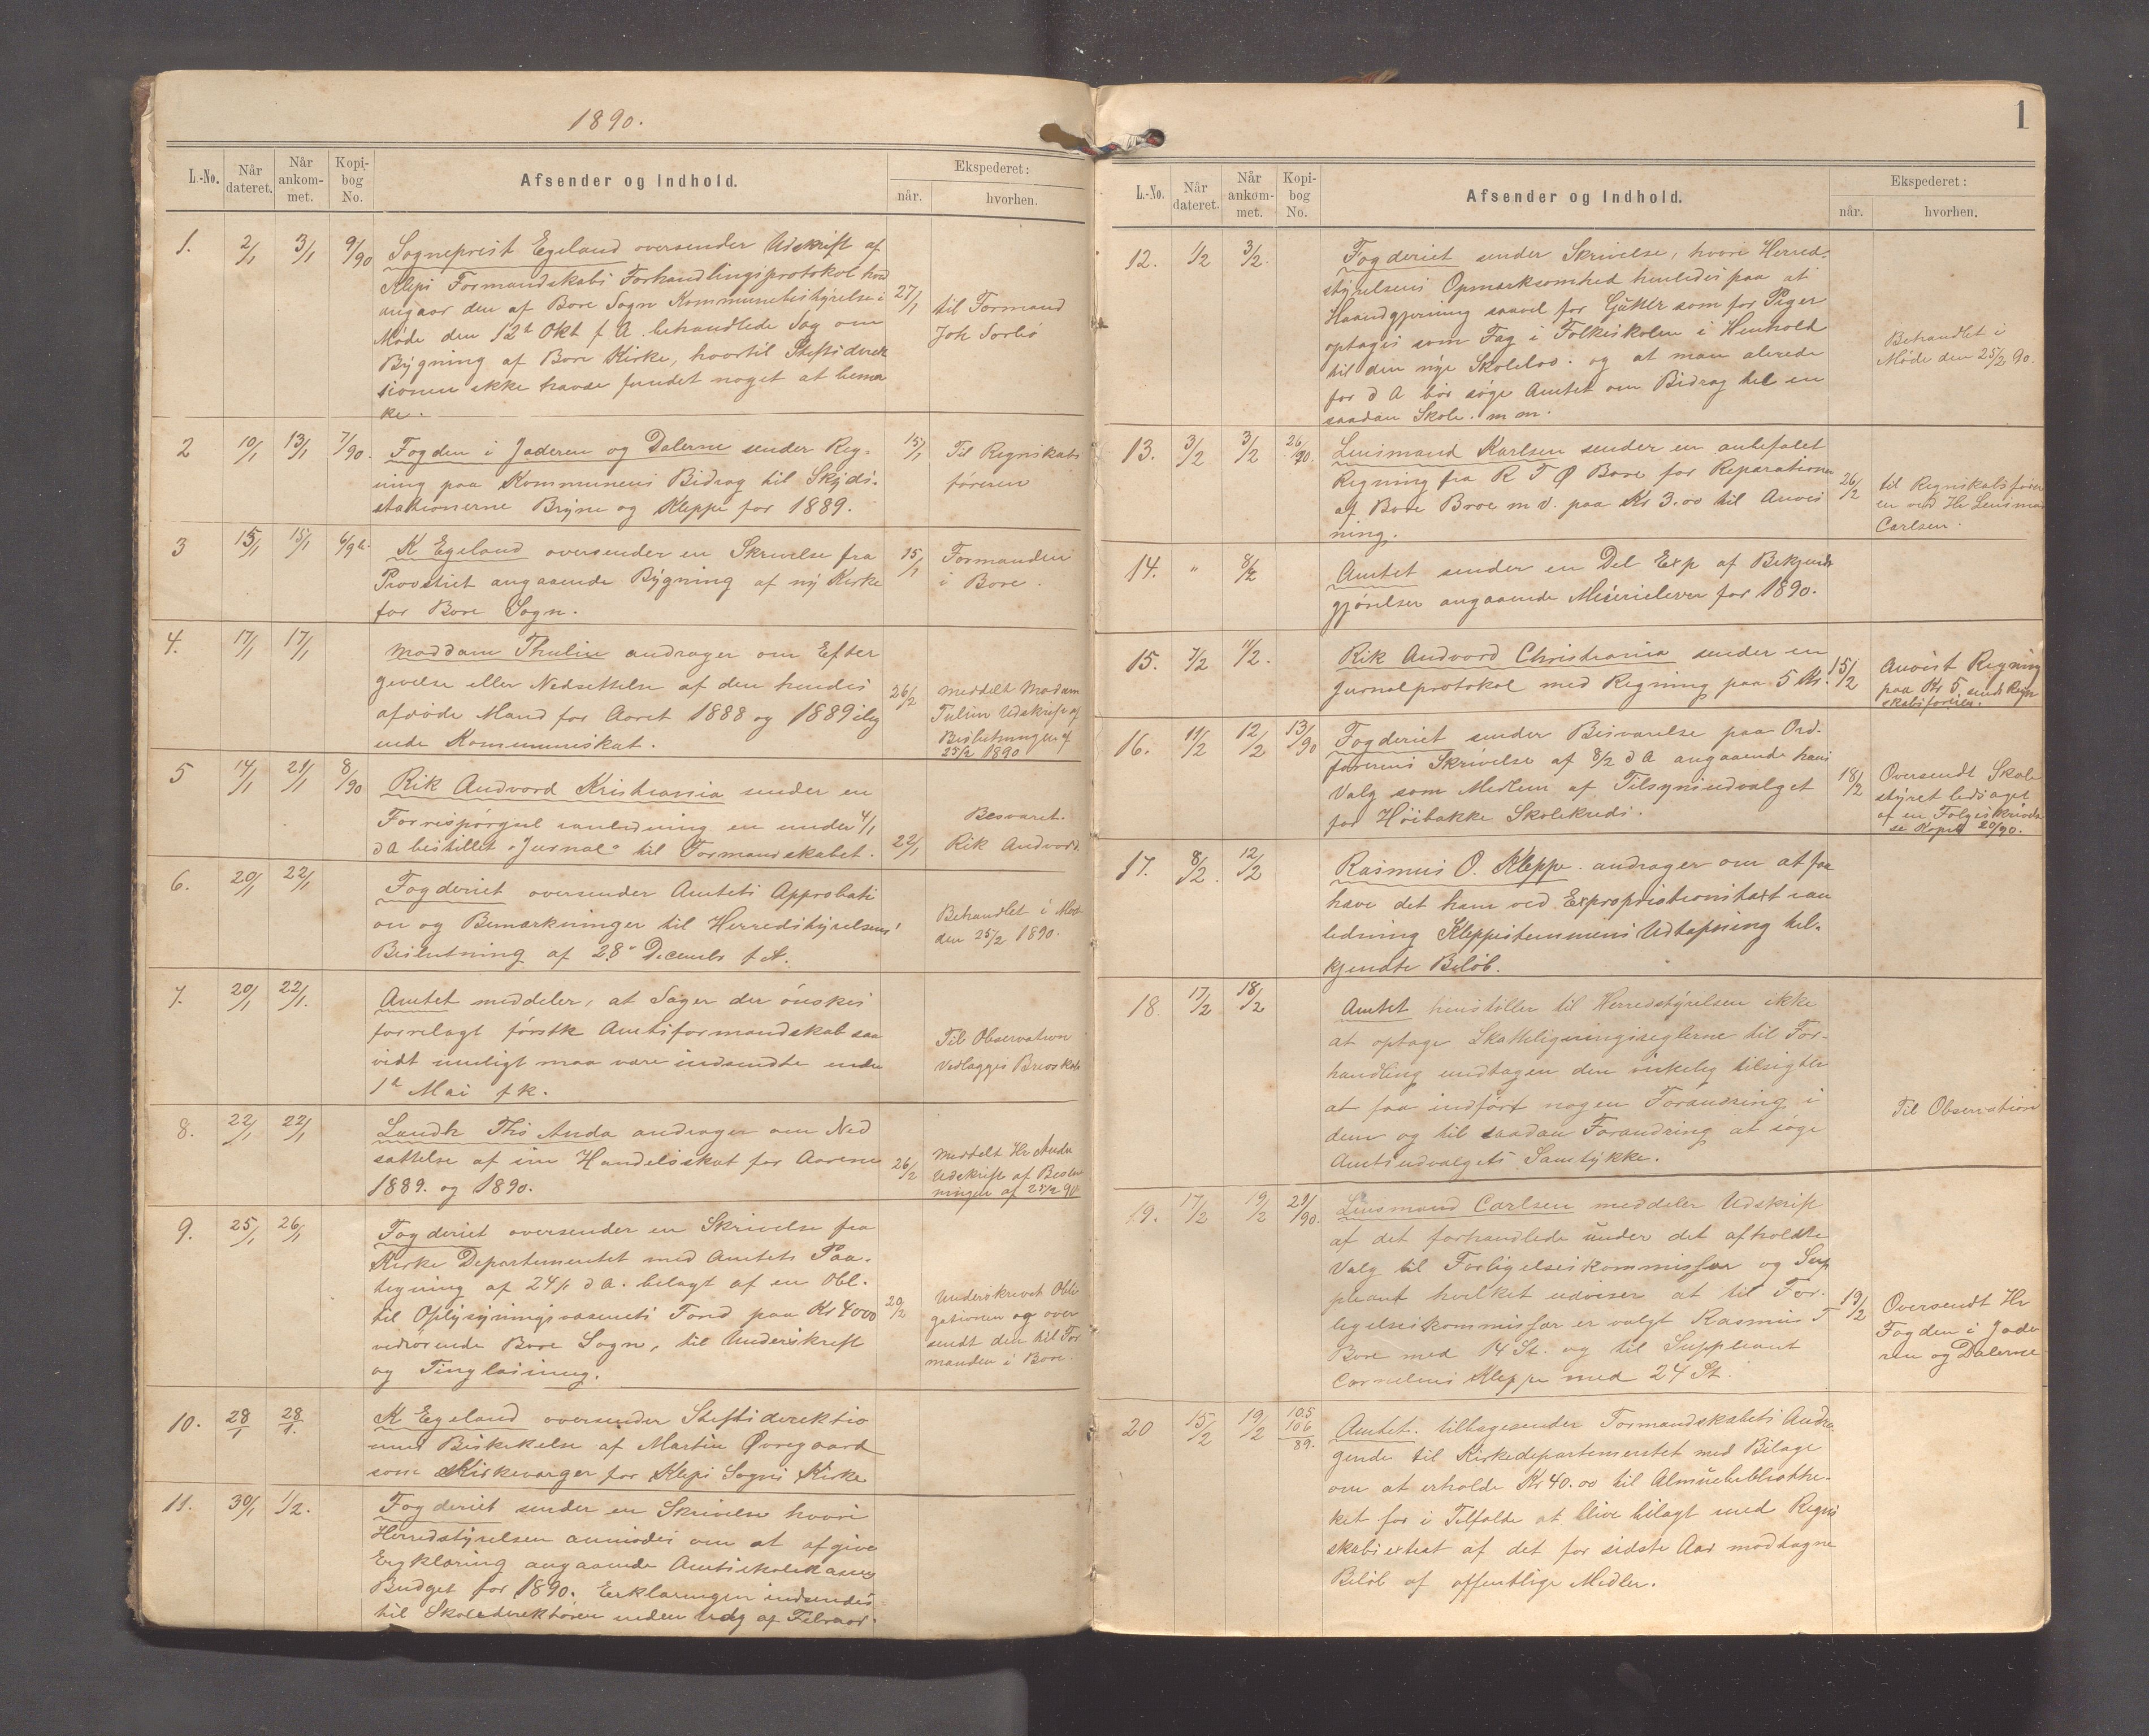 1890.
L.-No. Når dateret. Når ankommet. Kopibog No. Afsender og Indhold. Ekspederet: når. hvorhen.
1. 2/1 3/1 9/90 Sogneprest Egeland oversender Udskrift af
Kleps Formandskabs Forhandlingsprotokol hvad
angaar den af Bore Sogn Kommunebestyrelse i 27/1 til Formand
Møde den 12te Okt f A. behandlede Sag om Joh Sorbø
Bygning af Bore Kirke, hvortil Stiftsdirek
sionen ikke havde fundet noget at bemær
ke.
2 10/1 13/1 7/90. Fogden i Jæderen og Dalerne sender Reg- 15/1 Til Regnskabs
ning paa Kommunens Bidrag til Skyds- føreren
stationerne Bryne og Kleppe for 1889.
3 15/1 15/1 6/90. K Egeland oversender en Skrivelse fra 15/1 Formanden
Provstiet angaaende Bygning af ny Kirke i Bore.
for Bore Sogn.
4. 17/1 17/1 Maddam Thulin andrager om Efter
givelse eller Nedsettelse af den hendes 26/2 meddelt Madam
afdøde Mand for Aaret 1888 og 1889 ilig Tulin Udskrift af
nede Kommuneskat. Beslutningen af
25/2 1890
5 14/1 21/1 8/90 Rik Andvord Kristiania sender en
Forespørgsel i anledning en under 4/1 Besvaret.
d A bestillet "Jurnal" til Formandskabet. 22/1 Rik Andvord.
6. 20/1 22/1 Fogderiet oversender Amtets Approbati
on og Bemærkninger til Herredstyrelsens Behandlet i Mød
Beslutning af 28de December f A. den 25/2 1890.
7. 20/1 22/1. Amtet meddeler, at Sager der ønskes
forrelagt førstk Amtsformandskab saa Til Observation
vidt muligt maa være indsendte inden Vedlægges Brevskab
1te Mai f k.
8. 22/1 22/1 Landh Ths Anda andrager om Ned
sættelse af sin Handelsskat for Aarene 26/2 Meddelt Hr Anda
1889. og 1890. Udskrift af Beslut
ningen af 25/2 90
9. 25/1 26/1 Fogderiet oversender en Skrivelse fra
Kirke Departementet med Amtets Paa-
tegning af 24/1 d A. belagt af en Obl.
til Oplysningsvæsenets Fond paa Kr 4000 20/2 Underskrevet Obli
vedrørende Bore Sogn, til Underskrift gationen og over
og Tinglæsning. sendt den til For
manden i Bore.
10. 28/1 28/1. K Egeland oversender Stiftsdirektio
nens Beskikkelse af Martin Øvregaard
som Kirkeværger for Kleps Sogns Kirke
11. 30/1 1/2. Fogderiet sender en Skrivelse hvori
Herredstyrelsen anmodes om at afgive
Ergklæring angaaende Amtsskolekasens
Budget for 1890. Erklæringen indsendes
til Skoledirektøren inden Udg af Februar.
1
L.-No. Når dateret. Når ankommet. Kopibog No. Afsender og Indhold. Ekspederet: når. hvorhen.
12. 1/2 3/2. Fogderiet sender Skrivelse, hvori Herred-
styrelsens Opmærksomhed henledes paa at
Haandgjerning saavel for Gutter som for Piger
optages som Fag i Folkeskolen i Henhold Behandlet i
til den nye Skolelov. og at man alerede Møde den 25/2 90.
for d A bør søge Amtet om Bidrag til en
saadan Skole. m m.
13. 3/2 3/2 26/90. Lensmand Karlsen sender en anbefalet
Regning fra R T Ø Bore for Reparationen 26/2 til Regnskabsfører
af Bore Broe m v. paa Kr 3.00 til Anvis en ved Hr Lensman
ning. Carlsen.
14. " 8/2 Amtet sender en Del Exp af Bekjendt
gjørelser angaaende Meierielever for 1890.
15. 7/2 11/2. Rik Andvord Christiania sender en
Jurnalprotokol med Regning paa 5 Kr. 15/2 Anvist Regning
paa Kr 5. sendt Regn
skabsføreren.
16. 11/2 12/2 13/90 Fogderiet sender Besvarelse paa Ord-
førerens Skrivelse af 8/2 d A angaaende hans
Valg som Medlem af Tilsynsudvalget 18/2 Oversendt Skole
for Høibakke Skolekreds. styret ledsaget
af en Følgeskrivel
se Kopib 20/90.
17. 8/2. 12/2 Rasmus O. Kleppe. andrager om at faa
have det ham ved Expropriationstaxt i an
ledning Kleppestemmens Udtapning til-
kjendte Beløb.
18. 17/2 18/2 Amtet henstiller til Herredstyrelsen ikke
at optage Skatteligningsreglerne til For-
handling undtagen den virkelig tilsigter
at faa indført nogen Forandring i Til Observation
dem og til saadan Forandring at søge
Amtsudvalgets Samtykke.
19. 17/2 19/2 21/90. Lensmand Carlsen meddeler Udskrift
af det forhandlede under det afholdte
Valg til Forligelseskommissær og Sup
pleant hvilket udviser at til For- 19/2 Oversendt Hr
ligelseskommissær er valgt Rasmus T Fogden i Jæde
Bore med 14 St. og til Suppleant ren og Dalerne
Cornelius Kleppe med 24 St.
20 15/2 19/2 105 106/89. Amtet. tilbagesender Formandskabets Andra-
gende til Kirkedepartementet med Bilage
om at erholde Kr 40.00 til Almuebibliothe-
ket for i Tilfælde at blive bilagt med Regn
skabsextrat af det for sidste Aar modtagne
Beløb af offentlige Midler.